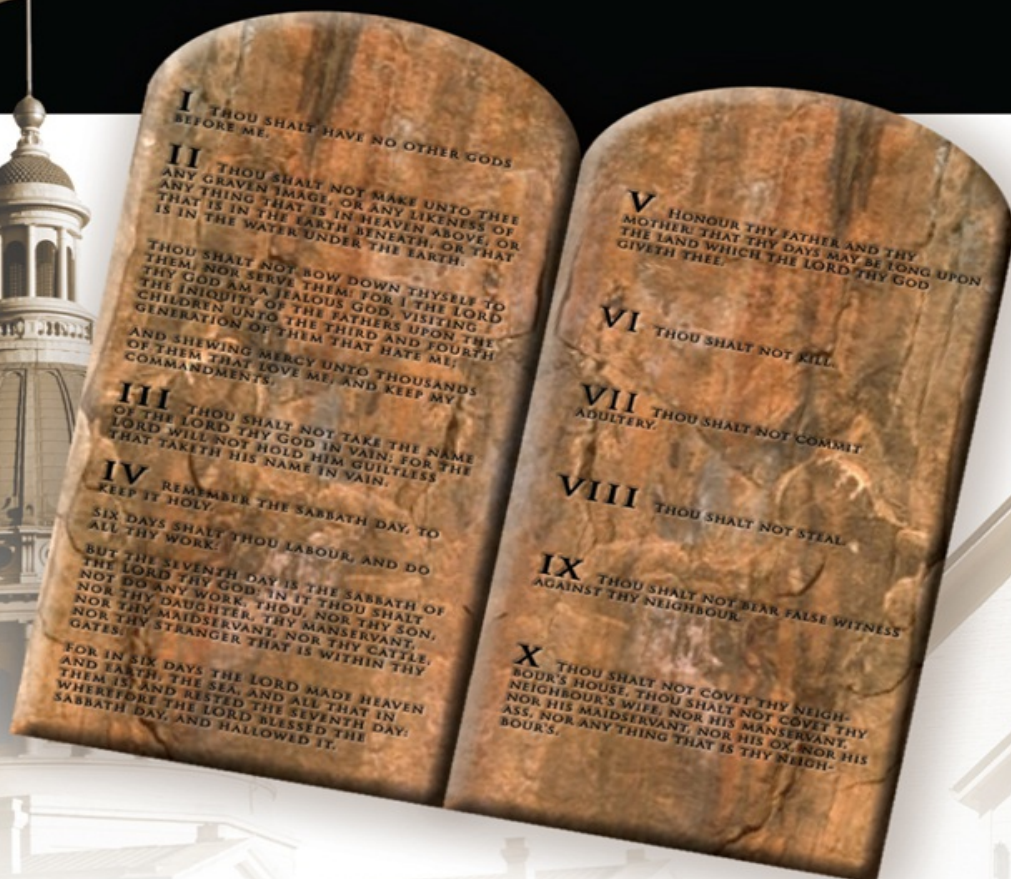 I THOU SHALT HAVE NO OTHER GODS
BEFORE ME.
II THOU SHALT NOT MAKE UNTO THEE
ANY GRAVEN IMAGE, OR ANY LIKENESS OF
ANY THING THAT IS IN HEAVEN ABOVE, OR
THAT IS IN THE EARTH BENEATH, OR THAT
IS IN THE WATER UNDER THE EARTH.
THOU SHALT NOT BOW DOWN THYSELF TO
THEM, NOR SERVE THEM: FOR I THE LORD
THY GOD AM A JEALOUS GOD, VISITING
THE INIQUITY OF THE FATHERS UPON THE
CHILDREN UNTO THE THIRD AND FOURTH
GENERATION OF THEM THAT HATE ME;
AND SHEWING MERCY UNTO THOUSANDS
OF THEM THAT LOVE ME, AND KEEP MY
COMMANDMENTS.
III THOU SHALT NOT TAKE THE NAME
OF THE LORD THY GOD IN VAIN; FOR THE
LORD WILL NOT HOLD HIM GUILTLESS
THAT TAKETH HIS NAME IN VAIN.
IV REMEMBER THE SABBATH DAY, TO
KEEP IT HOLY.
SIX DAYS SHALT THOU LABOUR, AND DO
ALL THY WORK:
BUT THE SEVENTH DAY IS THE SABBATH OF
THE LORD THY GOD: IN IT THOU SHALT
NOT DO ANY WORK, THOU, NOR THY SON,
NOR THY DAUGHTER, THY MANSERVANT,
NOR THY MAIDSERVANT, NOR THY CATTLE,
NOR THY STRANGER THAT IS WITHIN THY
GATES:
FOR IN SIX DAYS THE LORD MADE HEAVEN
AND EARTH, THE SEA, AND ALL THAT IN
THEM IS, AND RESTED THE SEVENTH DAY:
WHEREFORE THE LORD BLESSED THE
SABBATH DAY, AND HALLOWED IT.
V HONOUR THY FATHER AND THY
MOTHER: THAT THY DAYS MAY BE LONG UPON
THE LAND WHICH THE LORD THY GOD
GIVETH THEE.
VI THOU SHALT NOT KILL.
VII THOU SHALT NOT COMMIT
ADULTERY.
VIII THOU SHALT NOT STEAL.
IX THOU SHALT NOT BEAR FALSE WITNESS
AGAINST THY NEIGHBOUR.
X THOU SHALT NOT COVET THY NEIGH-
BOUR'S HOUSE, THOU SHALT NOT COVET THY
NEIGHBOUR'S WIFE, NOR HIS MANSERVANT,
NOR HIS MAIDSERVANT, NOR HIS OX, NOR HIS
ASS, NOR ANY THING THAT IS THY NEIGH-
BOUR'S.